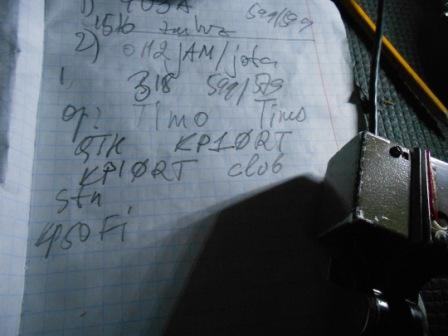 1) 4U3A 599/599
1516
2) OH2JAM/jota
1, 318 599/579
op: Timo Timo
QTH KP10RT
KP10RT club
stn
450 Fi